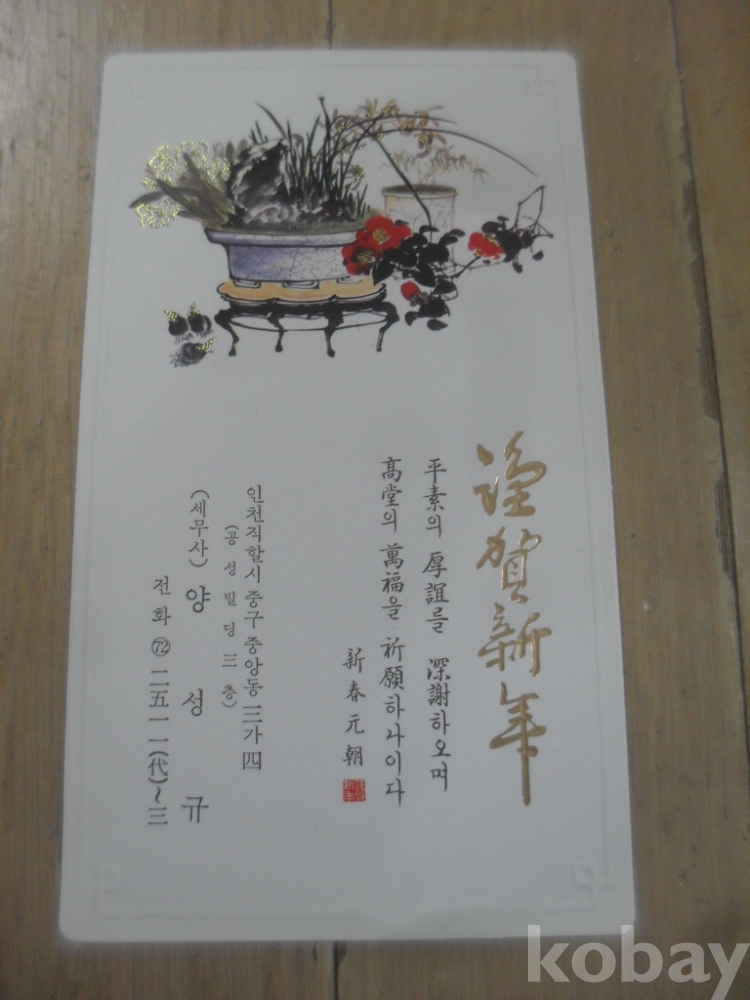 謹賀新年
平素의 厚誼를 深謝하오며
高堂의 萬福을 祈願하나이다
新春元朝
인천직할시 중구 중앙동 三가 四
(공성빌딩 三층)
(세무사) 양성규
전화 ㉒ 二五一一(代)~三
kobay